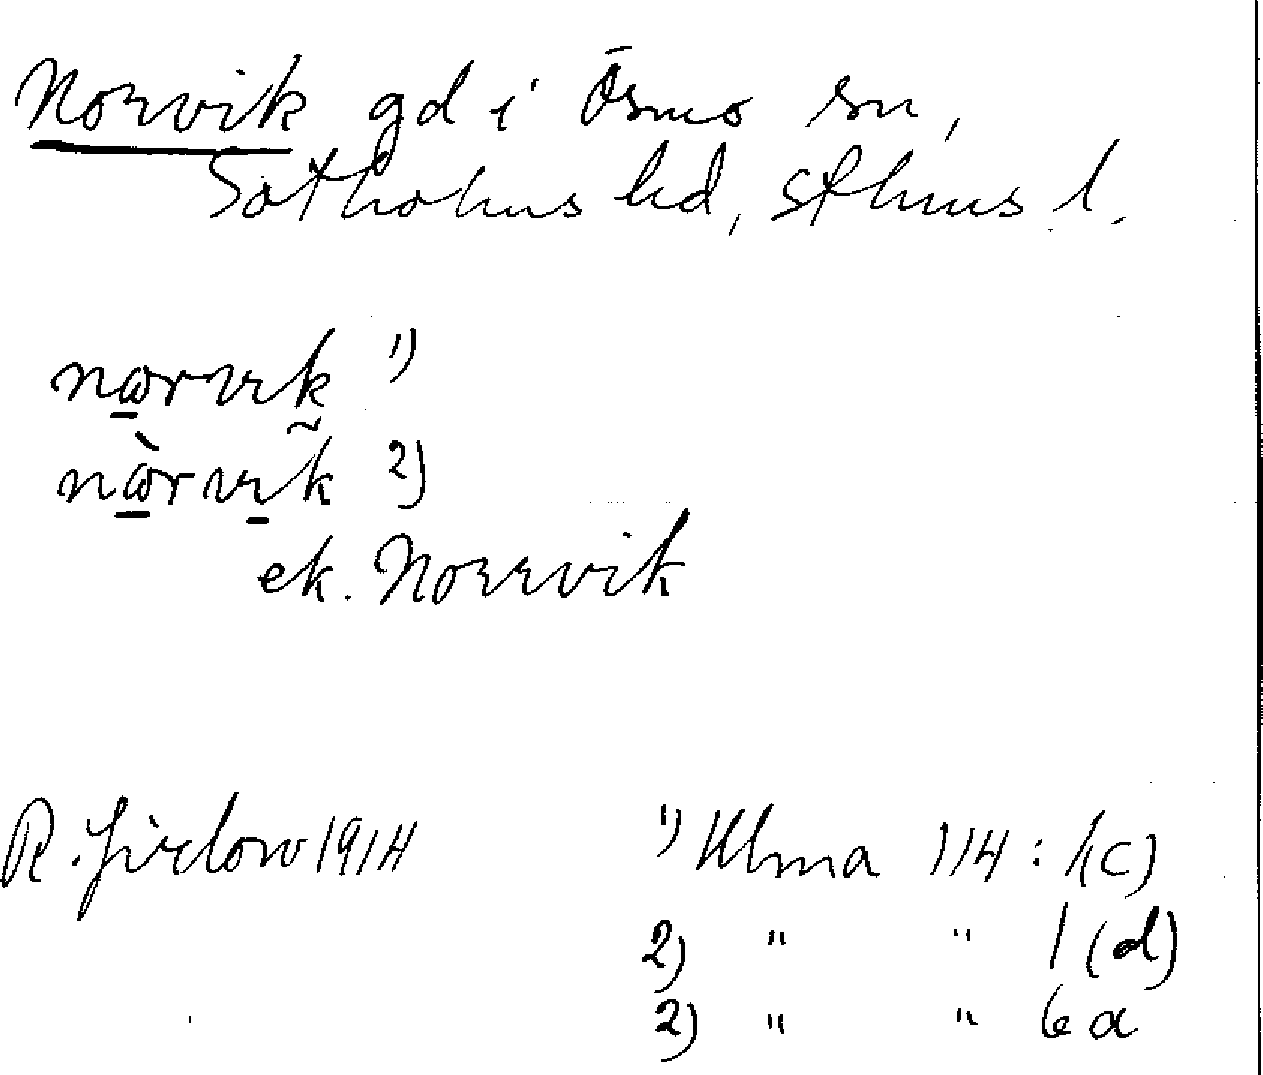 Norvik gd i Ösmo sn,
Sotholms hd, Sthms l.
nωrvik 1)
nὼrvik̃ 2)
ek. Norrvik
R. Jirlow 1914 1) Ulma 114: 1(c)
2) " " 1 (d)
2) " " 6 a